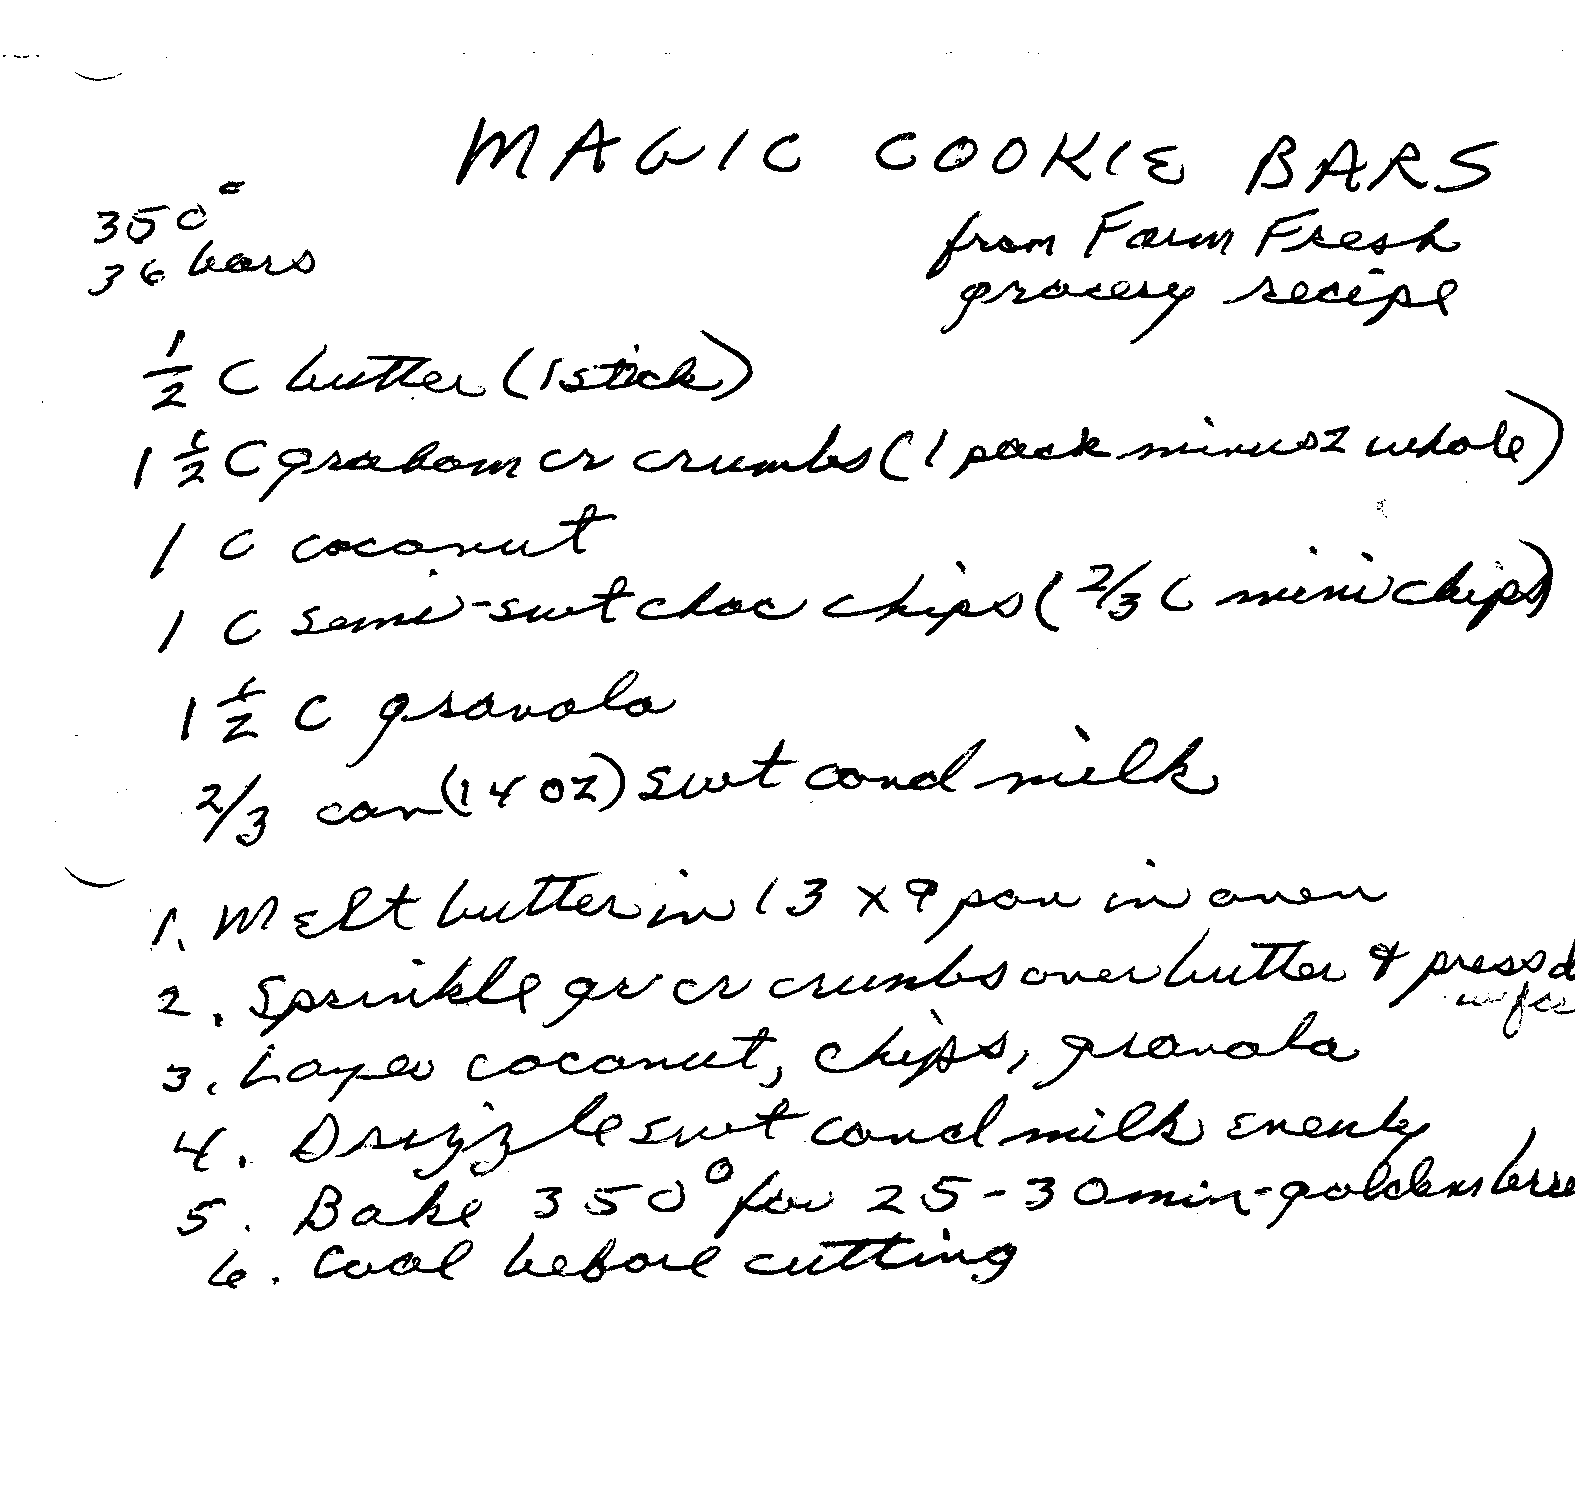 MAGIC COOKIE BARS
350°
36 bars
from Farm Fresh
grocery recipe
1/2 C butter (1 stick)
1 1/2 C graham cr crumbs (1 pack minus 2 whole)
1 C coconut
1 C semi-swt choc chips (2/3 C mini chips)
1 1/2 C granola
2/3 can (14 oz) swt cond milk
1. Melt butter in 13 x 9 pan in oven
2. Sprinkle gr cr crumbs over butter & press d
3. Layer coconut, chips, granola
4. Drizzle swt cond milk evenly
5. Bake 350° for 25-30 min - golden
6. Cool before cutting